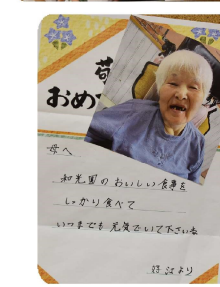 おめ
母へ
和光園のおいしい食事を
しっかり食べて
いつまでも元気でいて下さいな
より